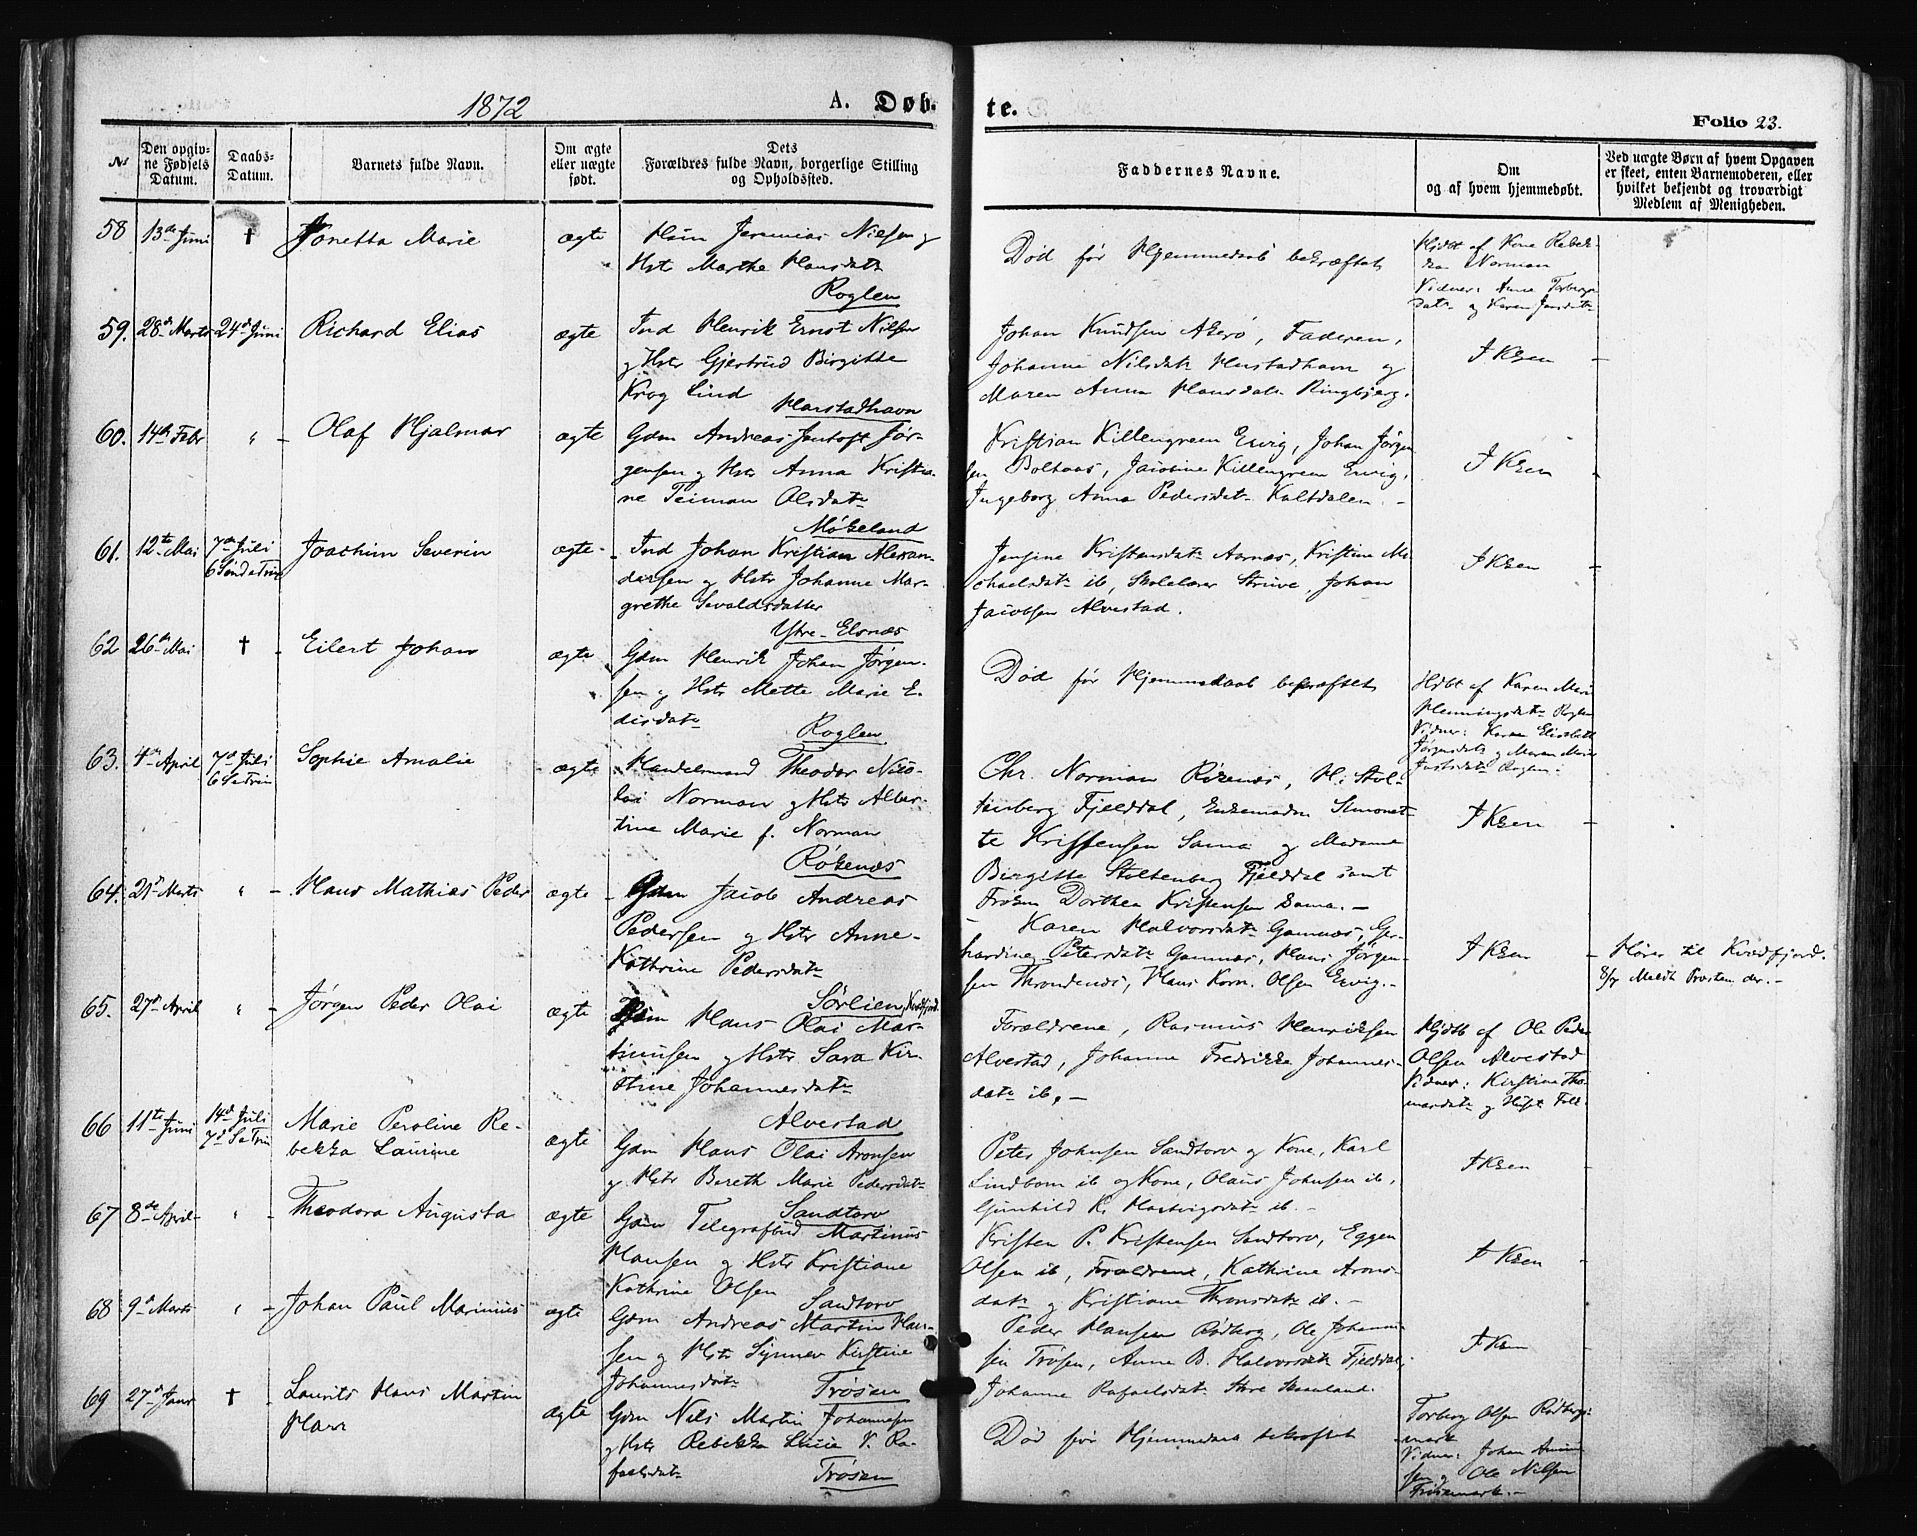 1872
A. Døb-
te.
Folio 23.
№
Den opgiv-
ne Fødsels
Datum.
Daabs-
Datum.
Barnets fulde Navn.
Om ægte
eller uægte
født.
Dets
Forældres fulde Navn, borgerlige Stilling
og Opholdssted.
Faddernes Navne.
Om
og af hvem hjemmedøbt.
Ved uægte Børn af hvem Opgaven
er skeet, enten Barnemoderen, eller
hvilket bekjendt og troværdigt
Medlem af Menigheden.
58 13de Juni † Jonetta Marie ægte
Huum Jeremias Nielsen og
Hst Marthe Hansdatr
Roglen
Død før Hjemmedaab bekræftet
Hjdbt af Kone Rebek-
ka Norman
Vidner: Anna Torbergs-
datr og Karen Jansdatr
59. 28de Marts 24de Juni Richard Elias ægte
Ind Henrik Ernst Nilsen
og Hstr Gjertrud Birgitte
Krog Lind
Harstadhavn
Johan Knudsen Akerø, Faderen,
Johanna Nilsdatr Harstadhavn og
Maren Anna Hansdatr Ringbjerg.
I Kken
60. 14de Febr " Olaf Hjalmar ægte
Gdm Andreas Jentoft Jør-
gensen og Hstr Anna Kristia-
ne Teiman Olsdatr
Møkeland
Kristian Killengreen Ervig, Johan Jørgen
sen Boltaas, Jacobine Killengreen Ervig,
Ingeborg Anna Pedersdatr Kaltdalen.
I Kken
61. 12te Mai 7de Juli
6 Sønd e Trin
Joachim Severin ægte
Ind Johan Kristian Alexan-
dersen og Hstr Johanne Mar-
grethe Sevaldsdatter
Ytre-Elsnæs
Jensine Kristensdatr Aarnæs, Kristine Mi-
chaelsdatr ib, Skolelærer Struve, Johan
Jacobsen Alvestad.
I Kken
62 26de Mai † Eilert Johan ægte
Gdm Henrik Johan Jørgen-
sen og Hstr Mette Marie E-
disdatr
Roglen
Død før Hjemmedaab bekræftet
Hdbt af Karen Mari
Henningsdatr Roglen
Vidner: Karen Elisabeth
Jørgensdatr og Maren Marie
Justsdatr Roglen.
63. 4de April 7de Juli
6 S e Trin
Sophie Amalie ægte
Handelsmand Theodor Nico-
lai Norman og Hstr Alber-
tine Marie f. Norman
Røkenæs
Chr. Norman Røkenæs, H. Stol-
tenberg Fjelddal, Enkemadm Simonet-
te Kristensen Sama og Madame
Birgitte Stoltenberg Fjelddal samt
Frøken Dorthea Kristensen Sama.
I Kken
64. 21de Marts " Hans Mathias Peder ægte
Gdm Jacob Andreas
Pedersen og Hstr Anne-
Kathrine Pedersdatr
Sørlien, Kvedfjord
Karen Halvorsdatr Gamnæs, Ger-
hardine Petersdatr Gamnæs, Hans Jørgen-
sen Throndenæs, Hans Korn. Olsen Ervig.
I Kken
Hører til Kvedfjord.
8/7 Meldt Provsten der.
65. 27de April " Jørgen Peder Olai ægte
Gdm Hans Olai Mar-
tinusen og Hstr Sara Kir-
stine Johannesdatr
Alvestad
Forældrene, Rasmus Henriksen
Alvestad, Johanna Fredrikke Johannes-
datr ib.
Hjdbt af Ole Peder
Olsen Alvestad
Vidner: Kirstine Tho-
masdatr og
66 11te Juni 14de Juli
7de S e Trin
Marie Peroline Re-
bekka Laurine ægte
Gdm Hans Olai Aronsen
og Hstr Bereth Marie Pedersdatr
Sandtorv
Peter Johnsen Sandtorv og Kone, Karl
Lindbom ib og Kone, Olaus Johnsen ib,
Gunhild K. Hartvigsdatr ib.
I Kken
67 8de April " Theodora Augusta ægte
Gdm Telegrafbud Martinus
Hansen og Hstr Kristiane
Kathrine Olsen
Sandtorv
Kristen P. Kristensen Sandtorv, Eggen
Olsen ib, Forældrene, Kathrine Arons-
datr og Kristiane Thomsdatr ib.
I Kken
68 9de Marts " Johan Paul Marinius ægte
Gdm Andreas Martin Han-
sen og Hstr Synnev Kirstine
Johannesdatr
Trøsen
Peder Hansen Rødberg, Ole Johanne-
sen Trøsen, Anne B. Halvorsdatr Fjelddal,
Johanne Rafaelsdatr
I Kken
69 27de Janr † Laurits Hans Martin
Harr ægte
Gdm Nils Martin Johannesen
og Hstr Rebekka Lucie V. Ra-
faelsdatr
Trøsen
Død før Hjemmedaab bekræftet
Torberg Olsen Rødbergs-
mark
Vidner: Johan
sen og Ole Nilsen